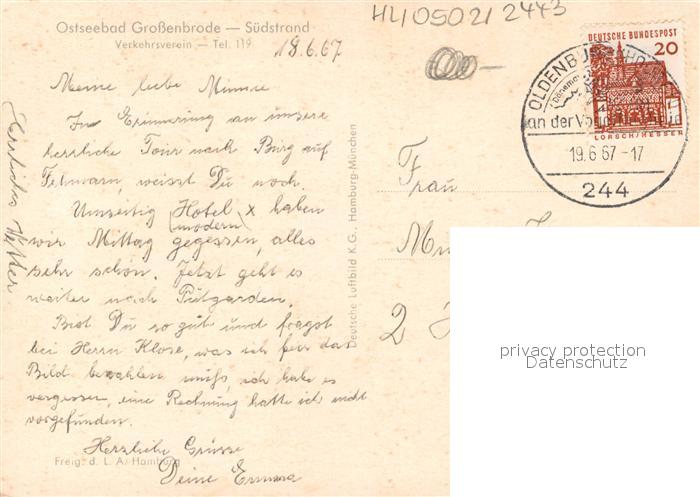 Ostseebad Großenbrode — Südstrand
Verkehrsverein — Tel. 119
18.6.67
Meine liebe Minnie
In Erinnerung an unsere
herrliche Tour nach Burg auf
Fehmarn, weisst Du noch.
Umseitig Hotel x haben
(modern)
wir Mittag gegessen, alles
sehr schön. Jetzt geht es
weiter nach Putgarden.
Bist Du so gut und fragst
bei Herrn Klose, was ich für das
Bild bezahlen muß, ich habe es
vergessen, eine Rechnung hatte ich nicht
vorgefunden.
Herzliche Grüsse
Deine Emma
Freig. d. L. A. Hamburg
Deutsche Luftbild K.G., Hamburg-München
HH 05021 2443
DEUTSCHE BUNDESPOST
20
LORSCH/HESSEN
OLDENBURG
an der Vo
19.6.67-17
244
Frau
2
privacy protection
Datenschutz